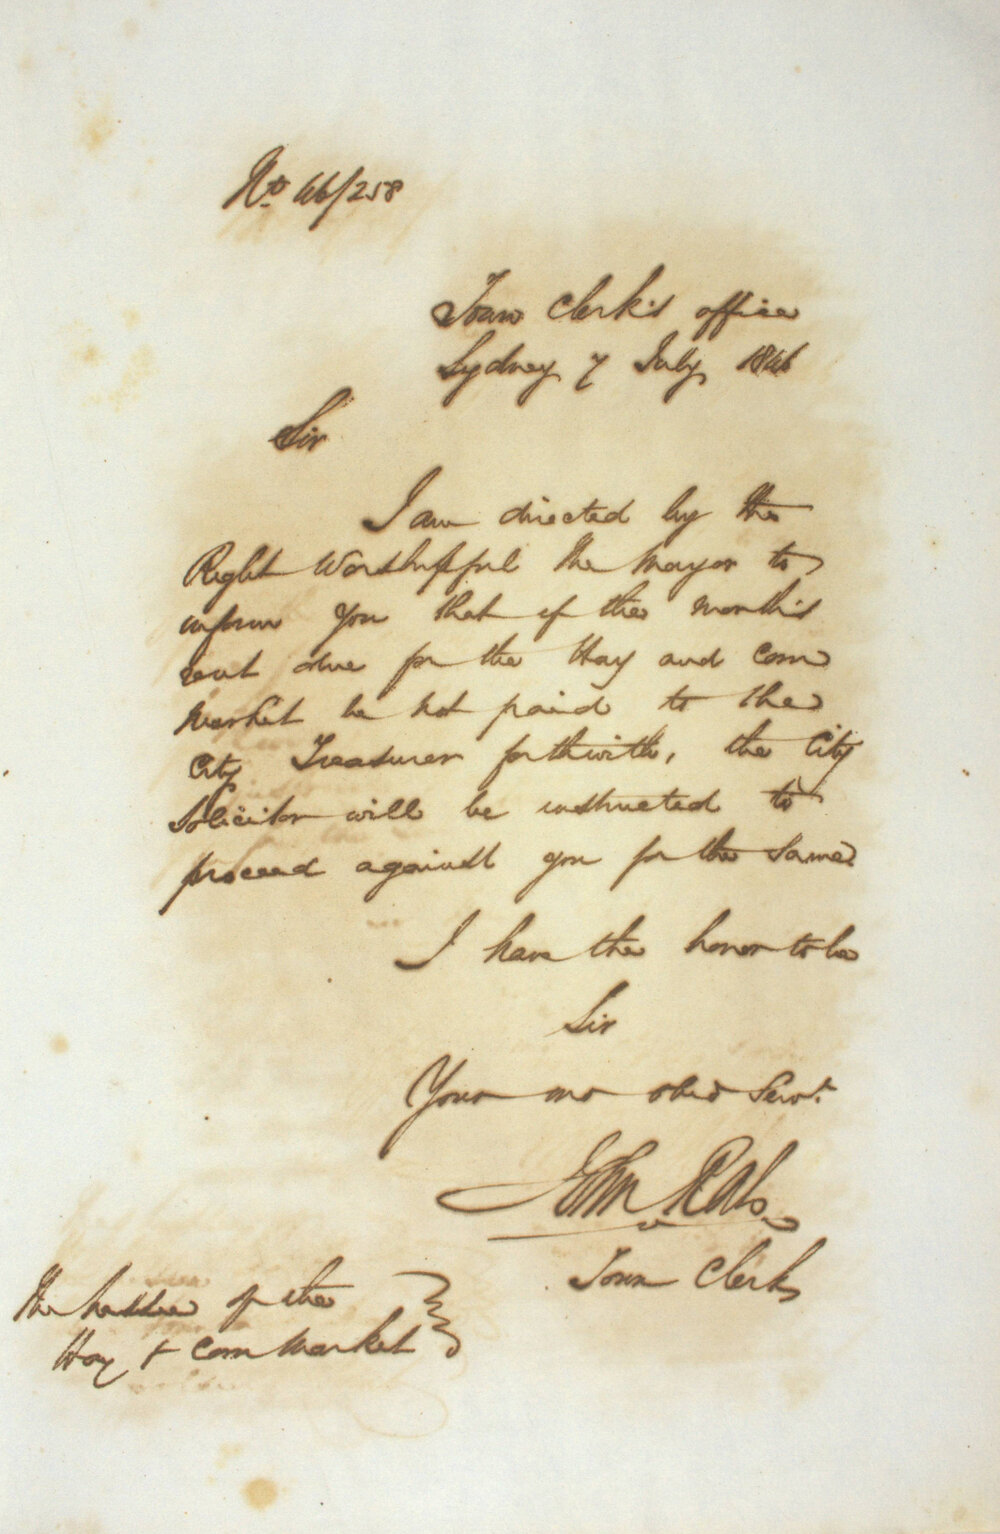 No. 46/258
Town Clerk's office
Sydney 7 July 1846
Sir
I am directed by the
Right Worshipful the Mayor to
inform you that if the month's
rent due for the Hay and Corn
Market be not paid to the
City Treasurer forthwith, the City
Solicitor will be instructed to
proceed against you for the same
I have the honor to be
Sir
Your mo obed Servt.
John Rae
Town Clerk
The lessee of the
Hay & Corn Market